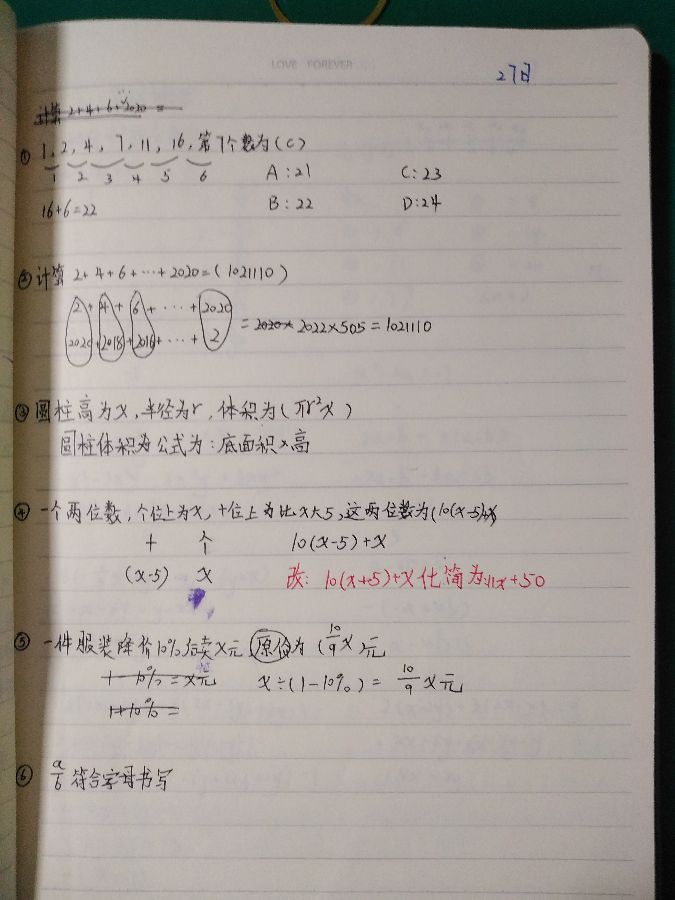 LOVE FOREVER
27日
计算 2+4+6+2020 =
① 1, 2, 4, 7, 11, 16, 第7个数为(C)
1 2 3 4 5 6 A:21 C:23
16+6=22 B:22 D:24
② 计算 2+4+6+…+2020=(1021110)
2 + 4 + 6 + … + 2020
= 2020× 2022×505 = 1021110
2020 + 2018 + 2016 + … + 2
③ 圆柱高为x,半径为r,体积为(πr²x)
圆柱体积为公式为:底面积×高
④ 一个两位数,个位上为x,十位上为比x大5,这两位数为(10(x-5)+x)
十 个 10(x-5)+x
(x-5) x 改: 10(x+5)+x 化简为:11x+50
⑤ 一件服装降价10%后卖x元,原价为(10/9 x)元
1-10%=x元 x÷(1-10%)= 10/9 x元
1+10%=
⑥ a/b 符合字母书写